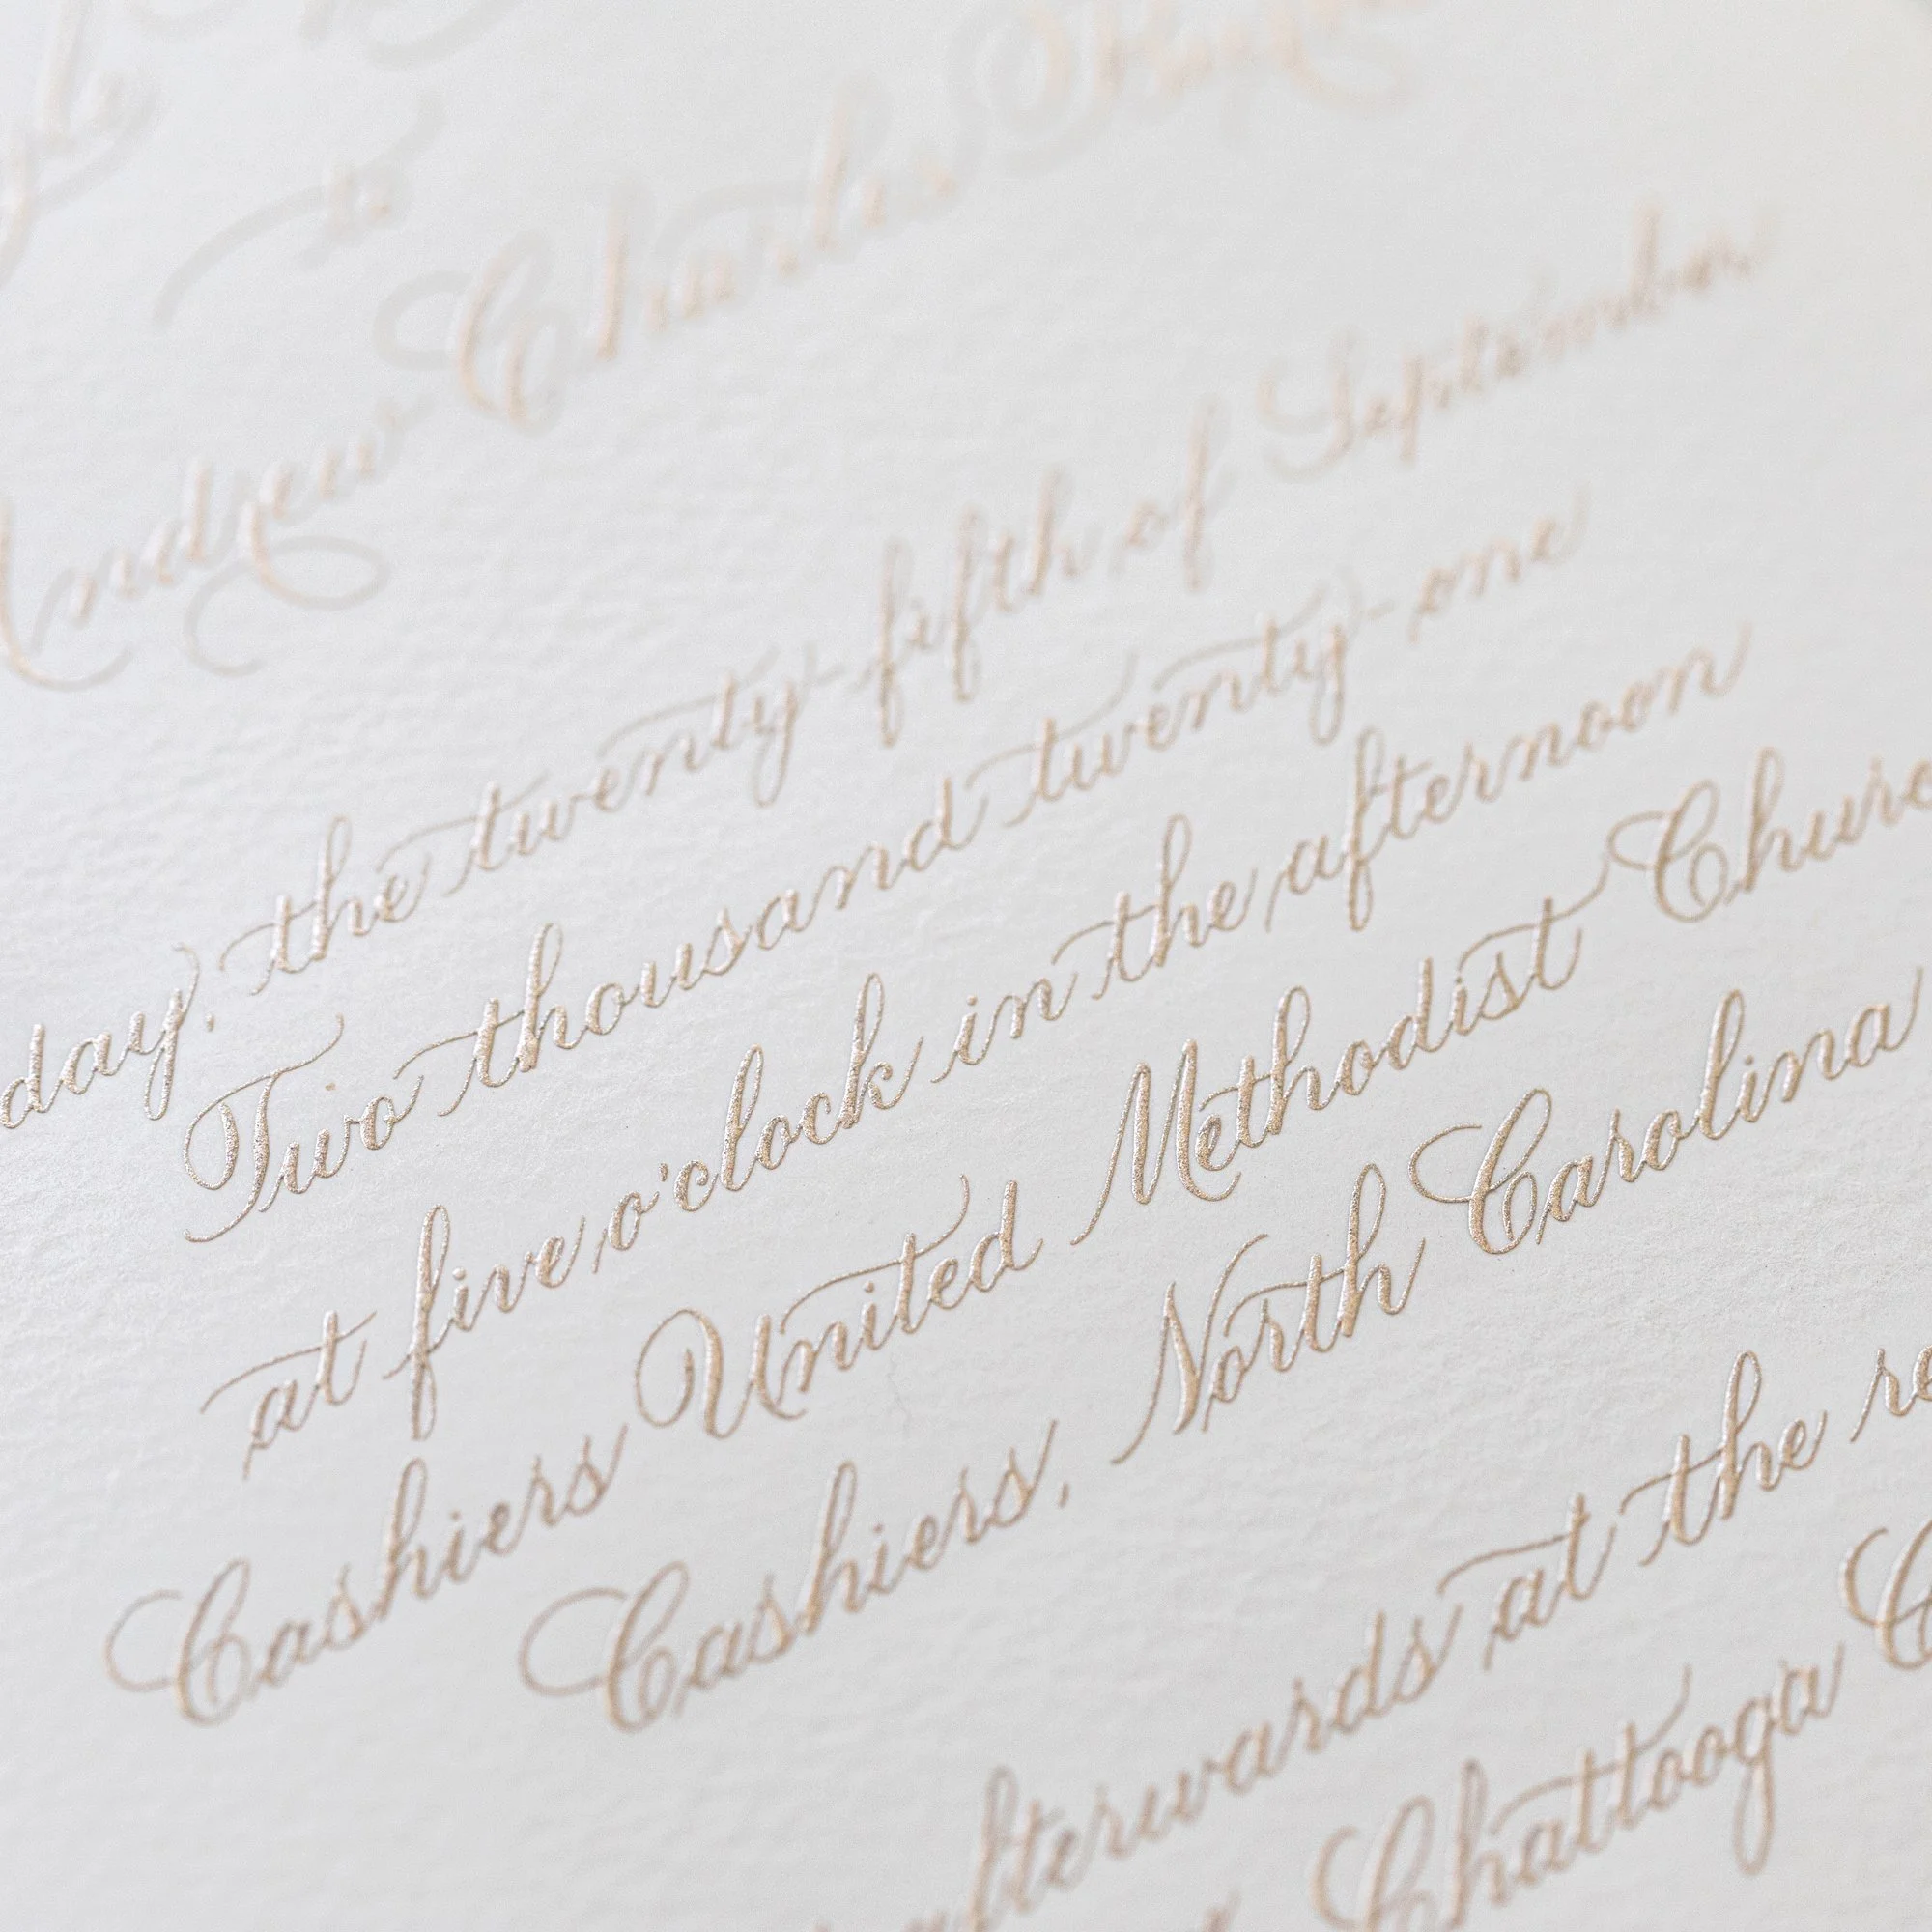 to
Andrew Charles
day, the twenty-fifth of September
Two thousand twenty-one
at five o'clock in the afternoon
Cashiers United Methodist Churc
Cashiers, North Carolina
afterwards at the re
Chattooga C